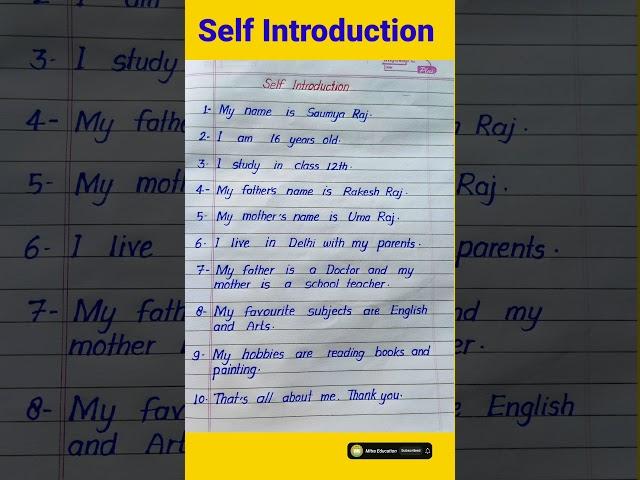 Self Introduction
Self Introduction
1- My name is Saumya Raj.
2- I am 16 years old.
3. I study in class 12th.
4- My father's name is Rakesh Raj.
5- My mother's name is Uma Raj.
6. I live in Delhi with my parents.
7- My father is a Doctor and my
mother is a school teacher.
8- My favourite subjects are English
and Arts.
9- My hobbies are reading books and
painting.
10. That's all about me. Thank you.
Mitva Education Subscribed
3- I study
4- My fathe
Raj.
5- My moth
Raj.
6- I live
parents.
7- My fath
nd my
mother
er.
8- My fav
English
and Art